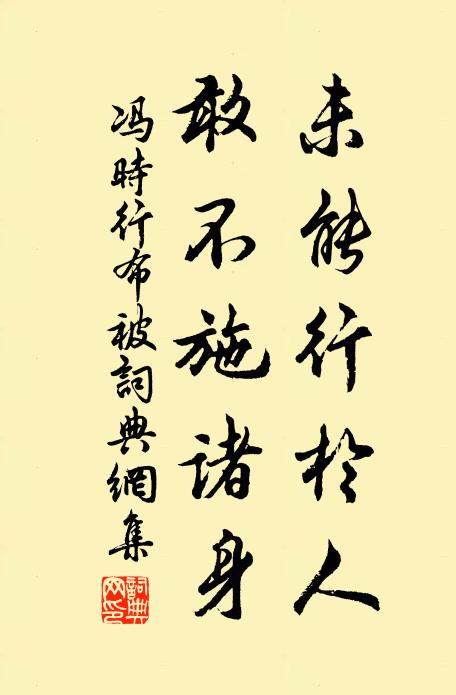 未能行於人
敢不施諸身
冯時行布被詞典網集
詞典网印